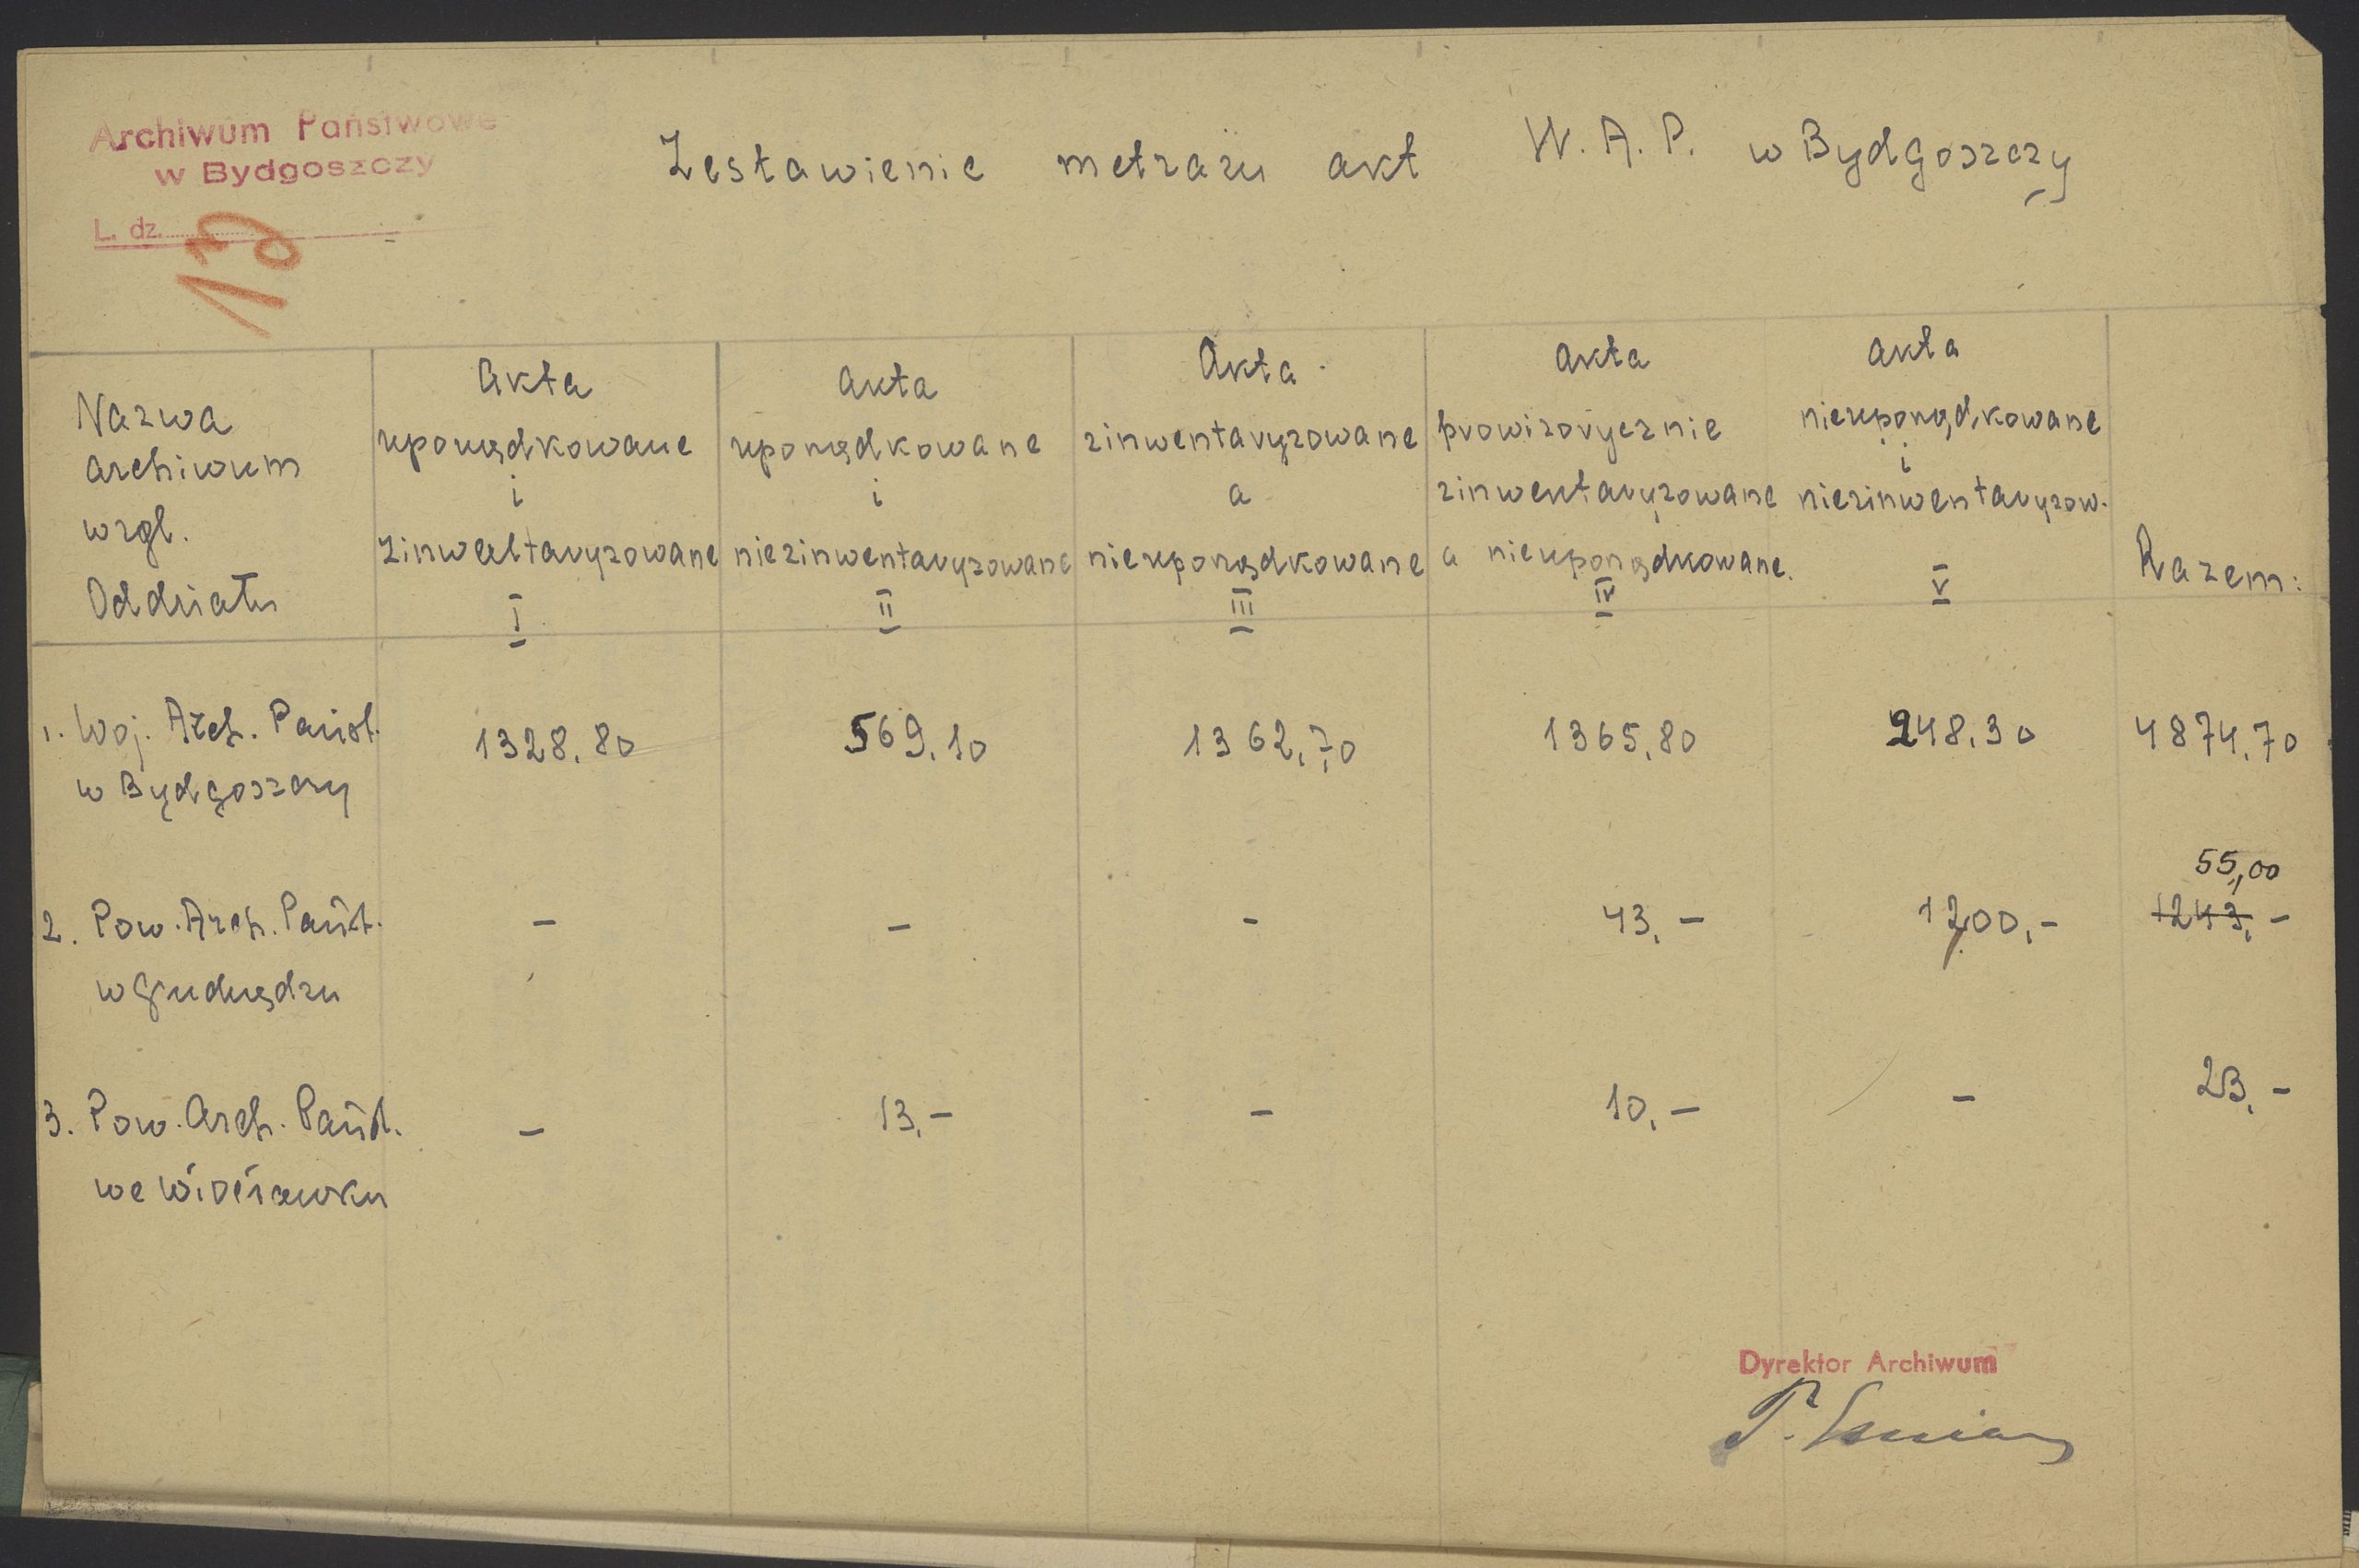 Archiwum Państwowe
w Bydgoszczy
L. dz.
Zestawienie metrażu akt W. A. P. w Bydgoszczy
Nazwa
archiwum
wzgl.
Oddziału
Akta
uporządkowane
i
zinwentaryzowane
I
Akta
uporządkowane
i
niezinwentaryzowane
II
Akta
zinwentaryzowane
a
nieuporządkowane
III
Akta
prowizorycznie
zinwentaryzowane
a nieuporządkowane.
IV
Akta
nieuporządkowane
i
niezinwentaryzow.
V
Razem:
1. Woj. Arch. Państ.
w Bydgoszczy
1328.80
569.10
1362,70
1365,80
248.30
4874.70
2. Pow. Arch. Państ.
w Grudziądzu
–
–
–
43,–
1200,–
55,00
1243,–
3. Pow. Arch. Państ.
we Włocławku
–
13,–
–
10,–
–
23,–
Dyrektor Archiwum